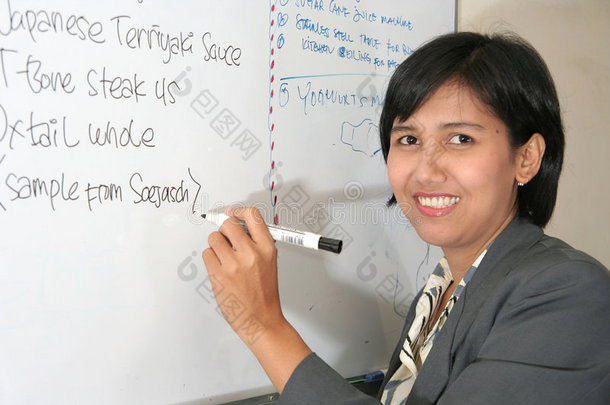 Japanese Terriyaki Sauce
T-Bone Steak us
Oxtail whole
(sample from Soejasch)
SUGAR CANE JUICE MACHINE
STAINLESS STEEL TABLE FOR
KITCHEN CEILING FOR